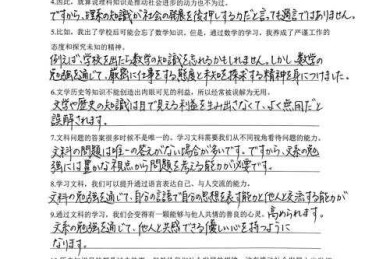 4.因此，就算说理科知识是推动社会进步的动力也不为过。
ですから、理系の知識が社会の発展を後押しする力だと言ても過言ではありません。
5.比如，我出了学校后可能会忘了数学知识，但是，通过数学的学习，我养成了严谨工作
的态度和探究未知的精神。
例えば、学校を出たら数学の知識も忘れるかもしれません。しかし、数学の
勉強を通じて、厳密に仕事をする態度と未知を探求する精神を身につけました。
6.文学历史等知识不能创造出肉眼可见的利益，所以经常被误解为无用。
文学や歴史の知識は目で見える利益をうみ出さなくて、よく無用だと
誤解されます。
7.文科问题的答案很多时候不是唯一的。学习文科需要我们从不同视角看待问题的能力。
文科の問題は唯一の答えがない場合が多いです。ですから、文系の勉
強には豊かな視点から問題を考える能力が必要です。
8.学习文科，我们可以提升通过语言表达自己、与人交流的能力。
文科の勉強を通じて、自分の言語で自分の思想を表す能力と他人と交流する能力が
高められます。
9.通过文科的学习，我们会变得有一颗能够与他人共情的善良的心灵。
文系の勉強を通じて、他人と共感できる優しい心を持つように
なります。